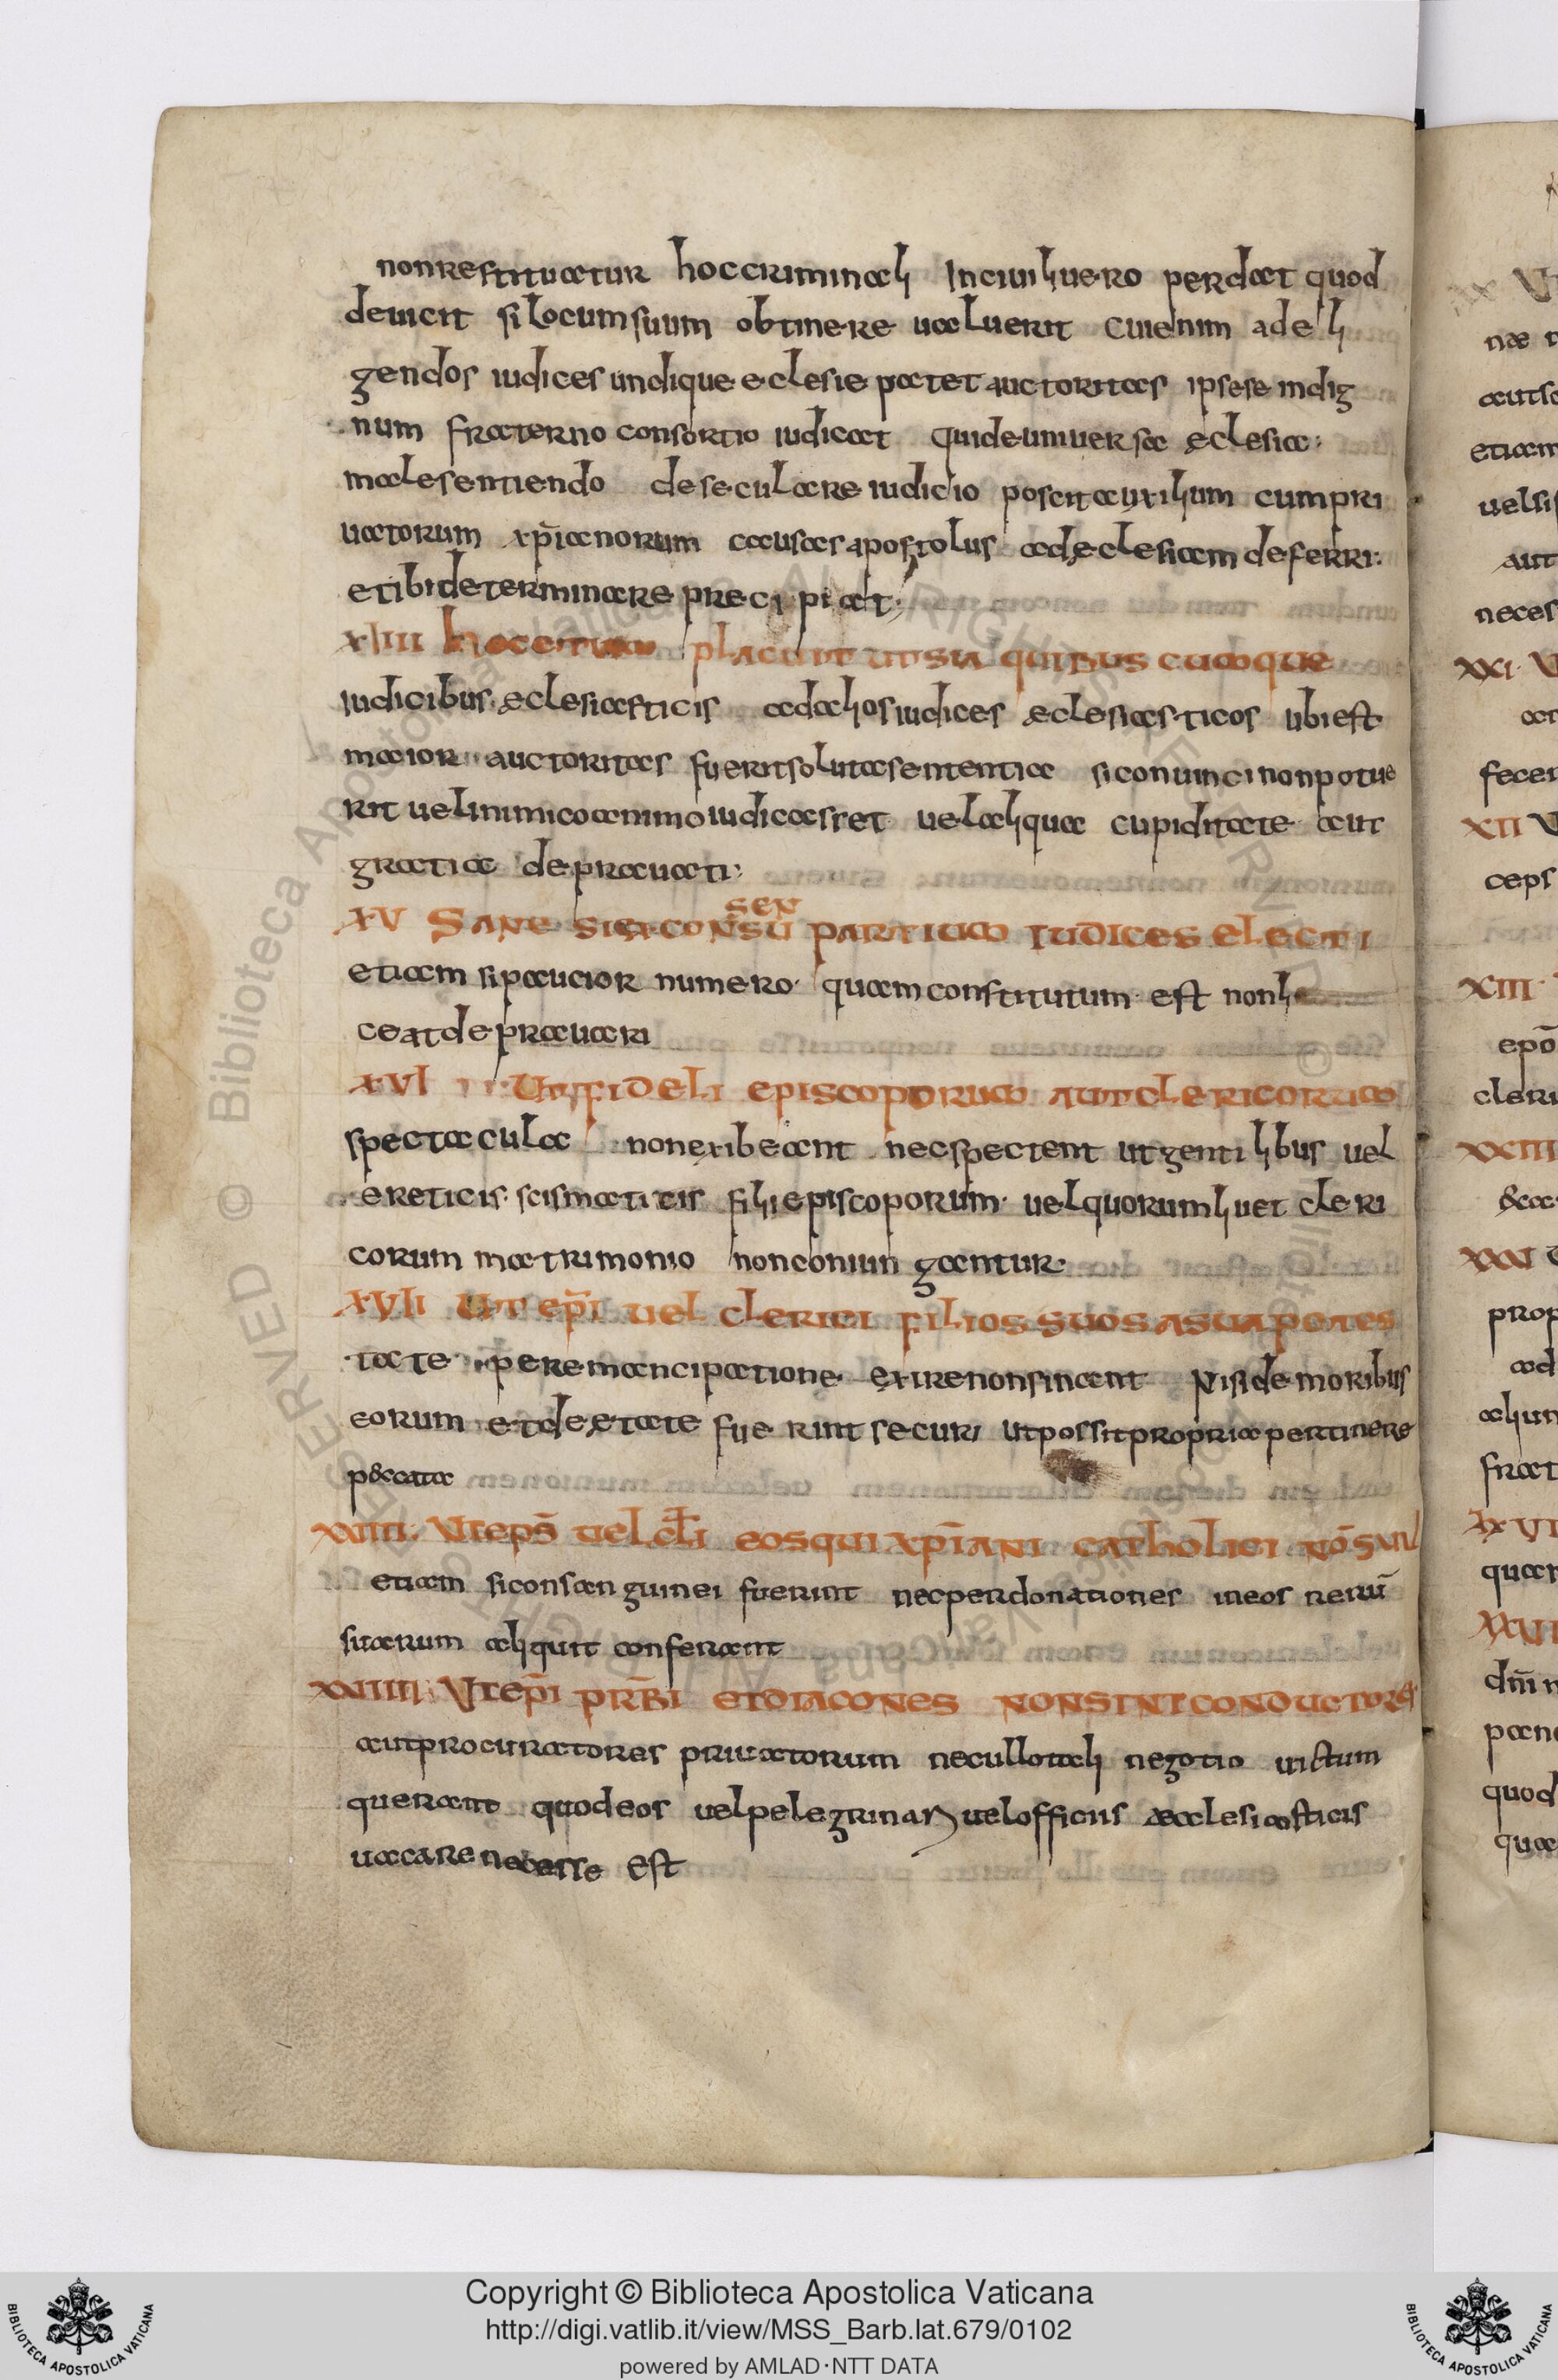 non restituatur hoc criminali In ciuili uero perdat quod
deuicit si locum suum obtinere ualuerit cui enim ad eli
gendos iudices undique eclesie patet auctoritas ipse se indig
num fraterno consortio iudicat qui de uniuersa eclesia
male sentiendo de seculare iudicio poscit auxilium cum pri
uatorum xp̄ianorum causas apostolus ad eclesiam deferri.
et ibi determinare precipiat;
xiiii hoc etiam placuit ut si a quibuscumque
iudicibus eclesiasticis ad alios iudices eclesiasticos ubi est
maior auctoritas fuerit soluta sententia si conuinci non potue
rit uel inimico animo iudicasret uel aliqua cupiditate aut
gratia deprauati;
XV SANE SI EX CONSENSŪ PARTIUM IUDICES ELECTI
etiam si paucior numero quam constitutum est non li
ceat deprauari
XVI UT FIDELI EPISCOPORUM AUT CLERICORUM
spectacula non exibeant nec spectent ut gentilibus uel
ereticis scismaticis filii episcoporum uel quorumliuet cleri
corum matrimonio non coniungantur
XVII UT EP̄I UEL CLERICI FILIOS SUOS A SUA POTES
tate per emancipatione exire non sinant Nisi de moribus
eorum et de etate fuerint securi ut possit propria pertinere
p&cata
XXIII. UT EP̄S UEL CL̄I EOS QUI XP̄IANI CATHOLICI NŌ SUN
etiam si consanguinei fuerint nec per donationes in eos rerū
suarum aliquit conferant
XXIIII UT EP̄I PR̄B̄I ET DIACONES NON SINT CONDUCTORES
aut procuratores priuatorum nec ullo tali negotio uictum
querant quod eos uel pelegrinar uel officiis aecclesiasticis
uacare necesse est
Copyright © Biblioteca Apostolica Vaticana
http://digi.vatlib.it/view/MSS_Barb.lat.679/0102
powered by AMLAD·NTT DATA